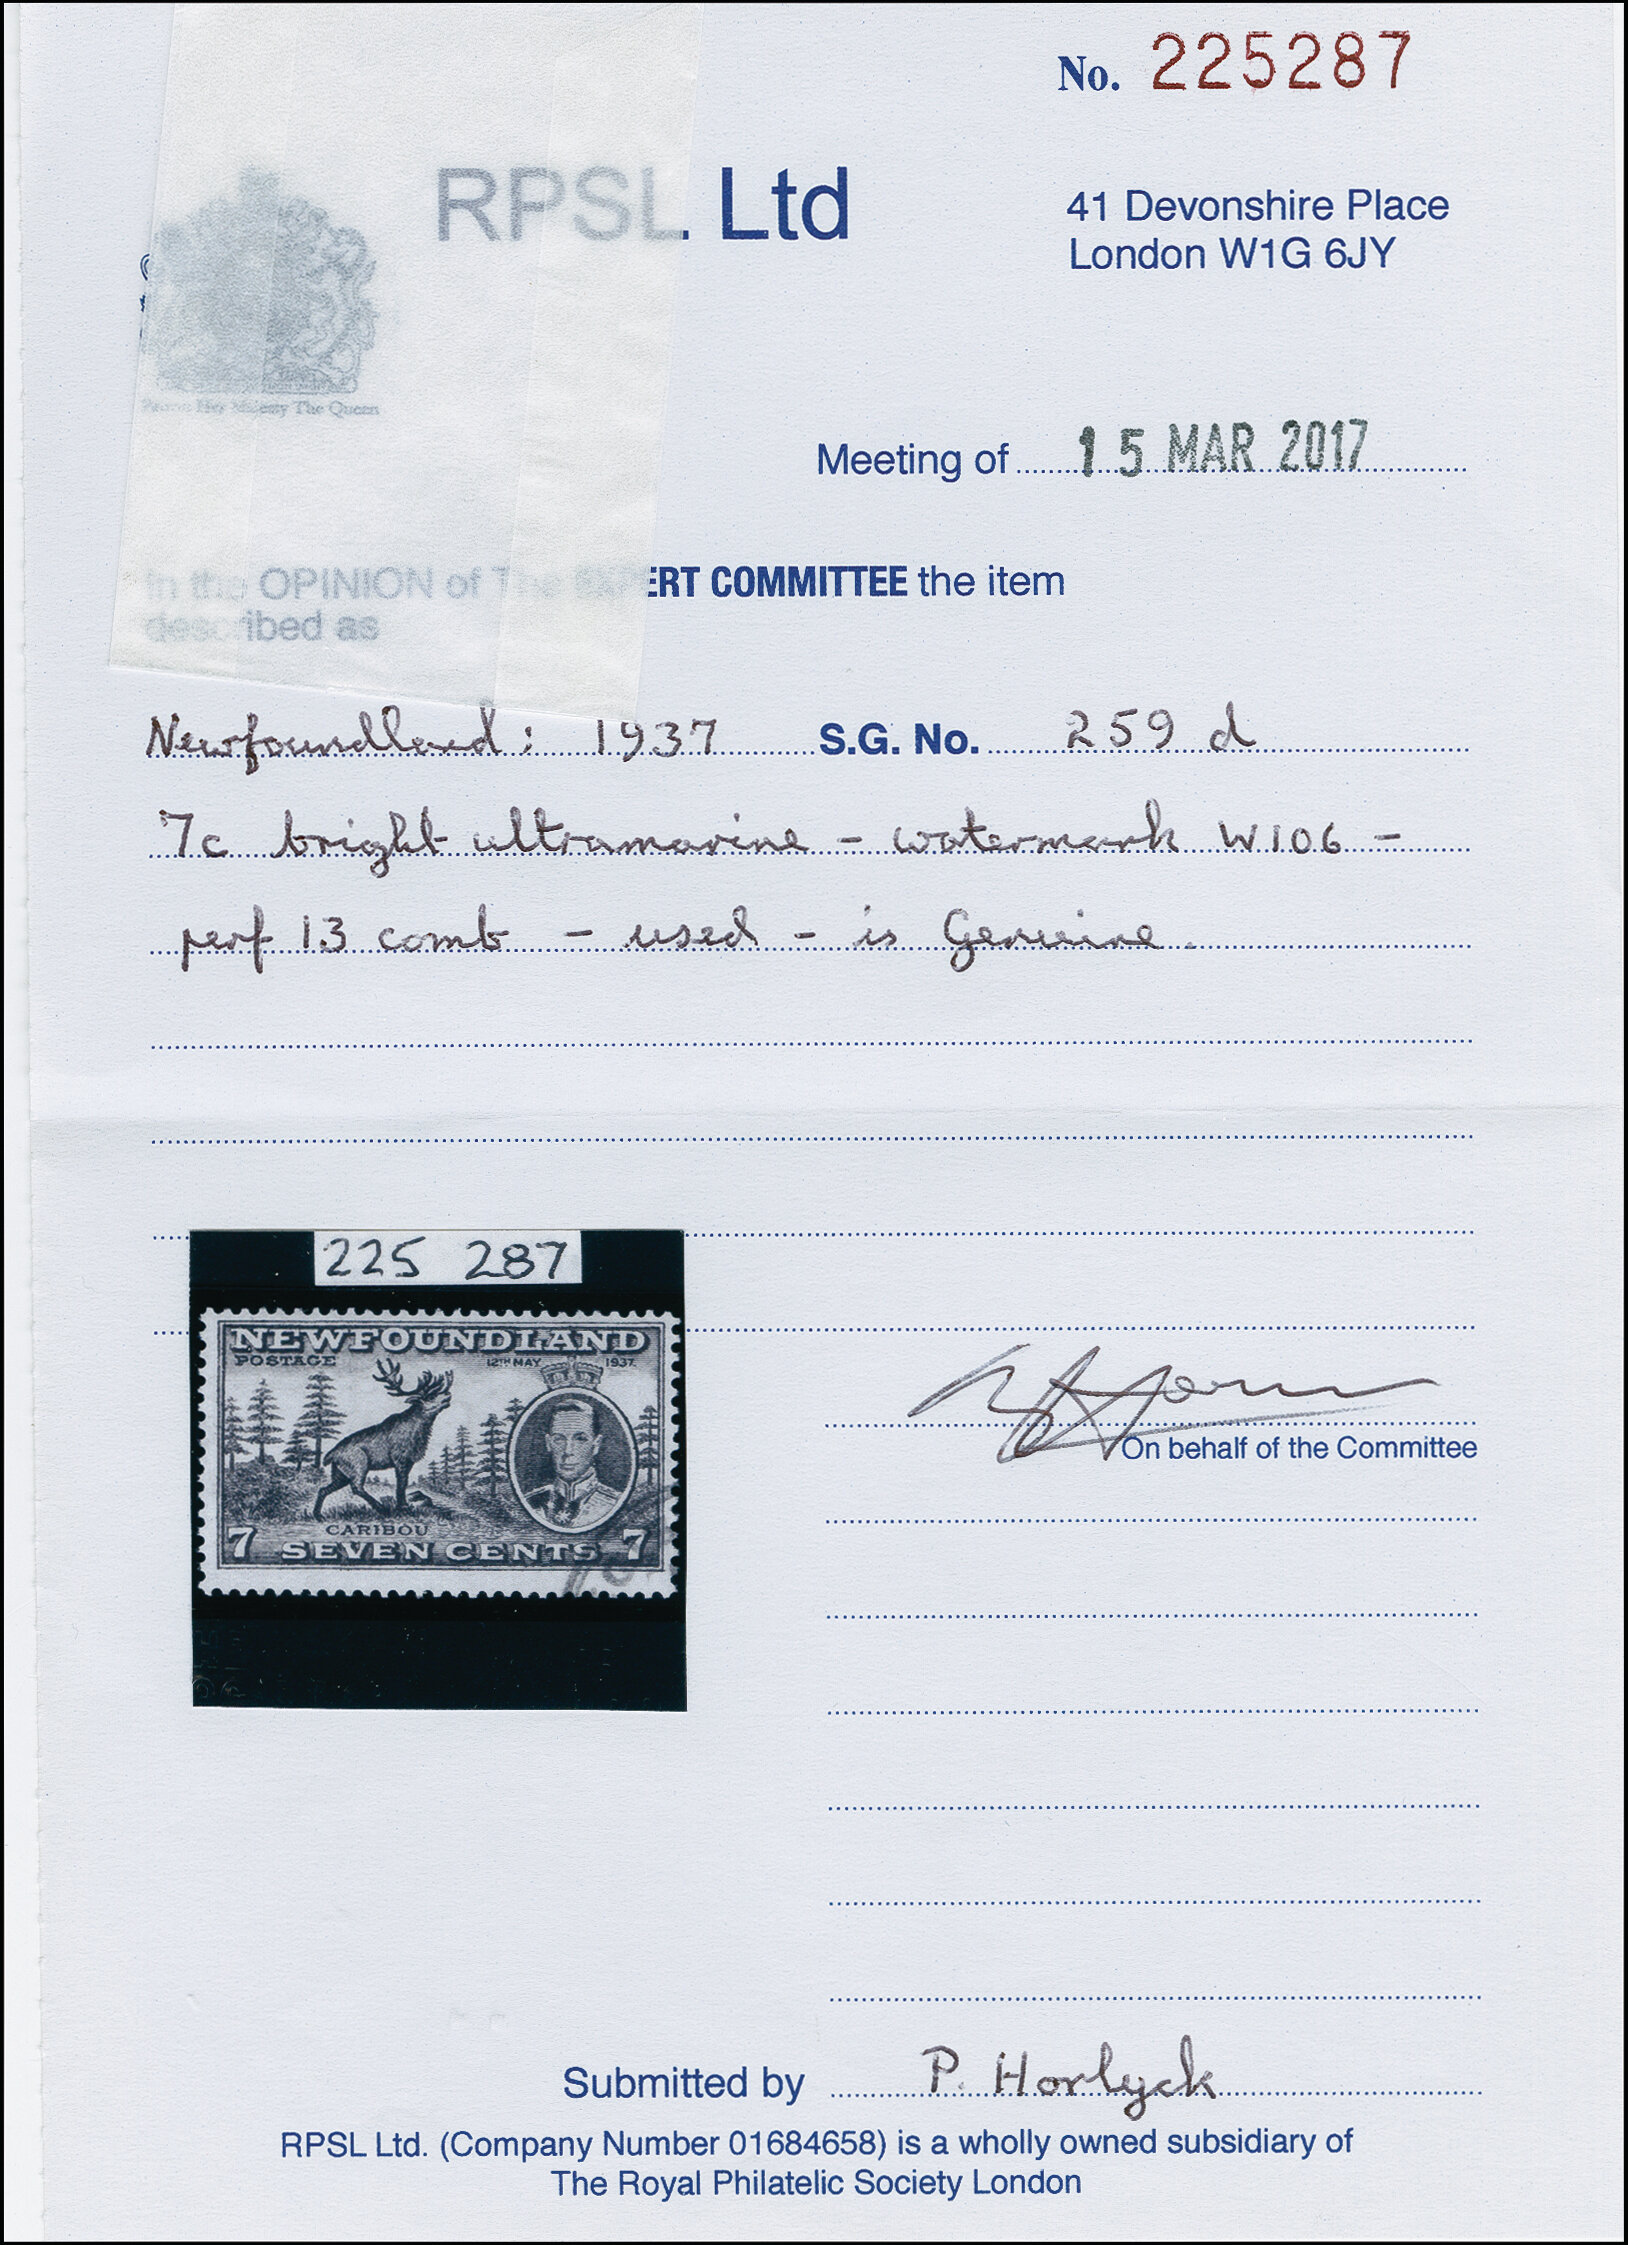 No. 225287
RPSL Ltd
41 Devonshire Place
London W1G 6JY
Patron Her Majesty The Queen
Meeting of 15 MAR 2017
In the OPINION of The EXPERT COMMITTEE the item
described as
Newfoundland: 1937 S.G. No. 259 d
7c bright ultramarine - watermark W106 -
perf 13 comb - used - is Genuine.
225 287
NEWFOUNDLAND
POSTAGE 12TH MAY 1937.
CARIBOU
7 SEVEN CENTS 7
On behalf of the Committee
Submitted by P. Horlyck
RPSL Ltd. (Company Number 01684658) is a wholly owned subsidiary of
The Royal Philatelic Society London